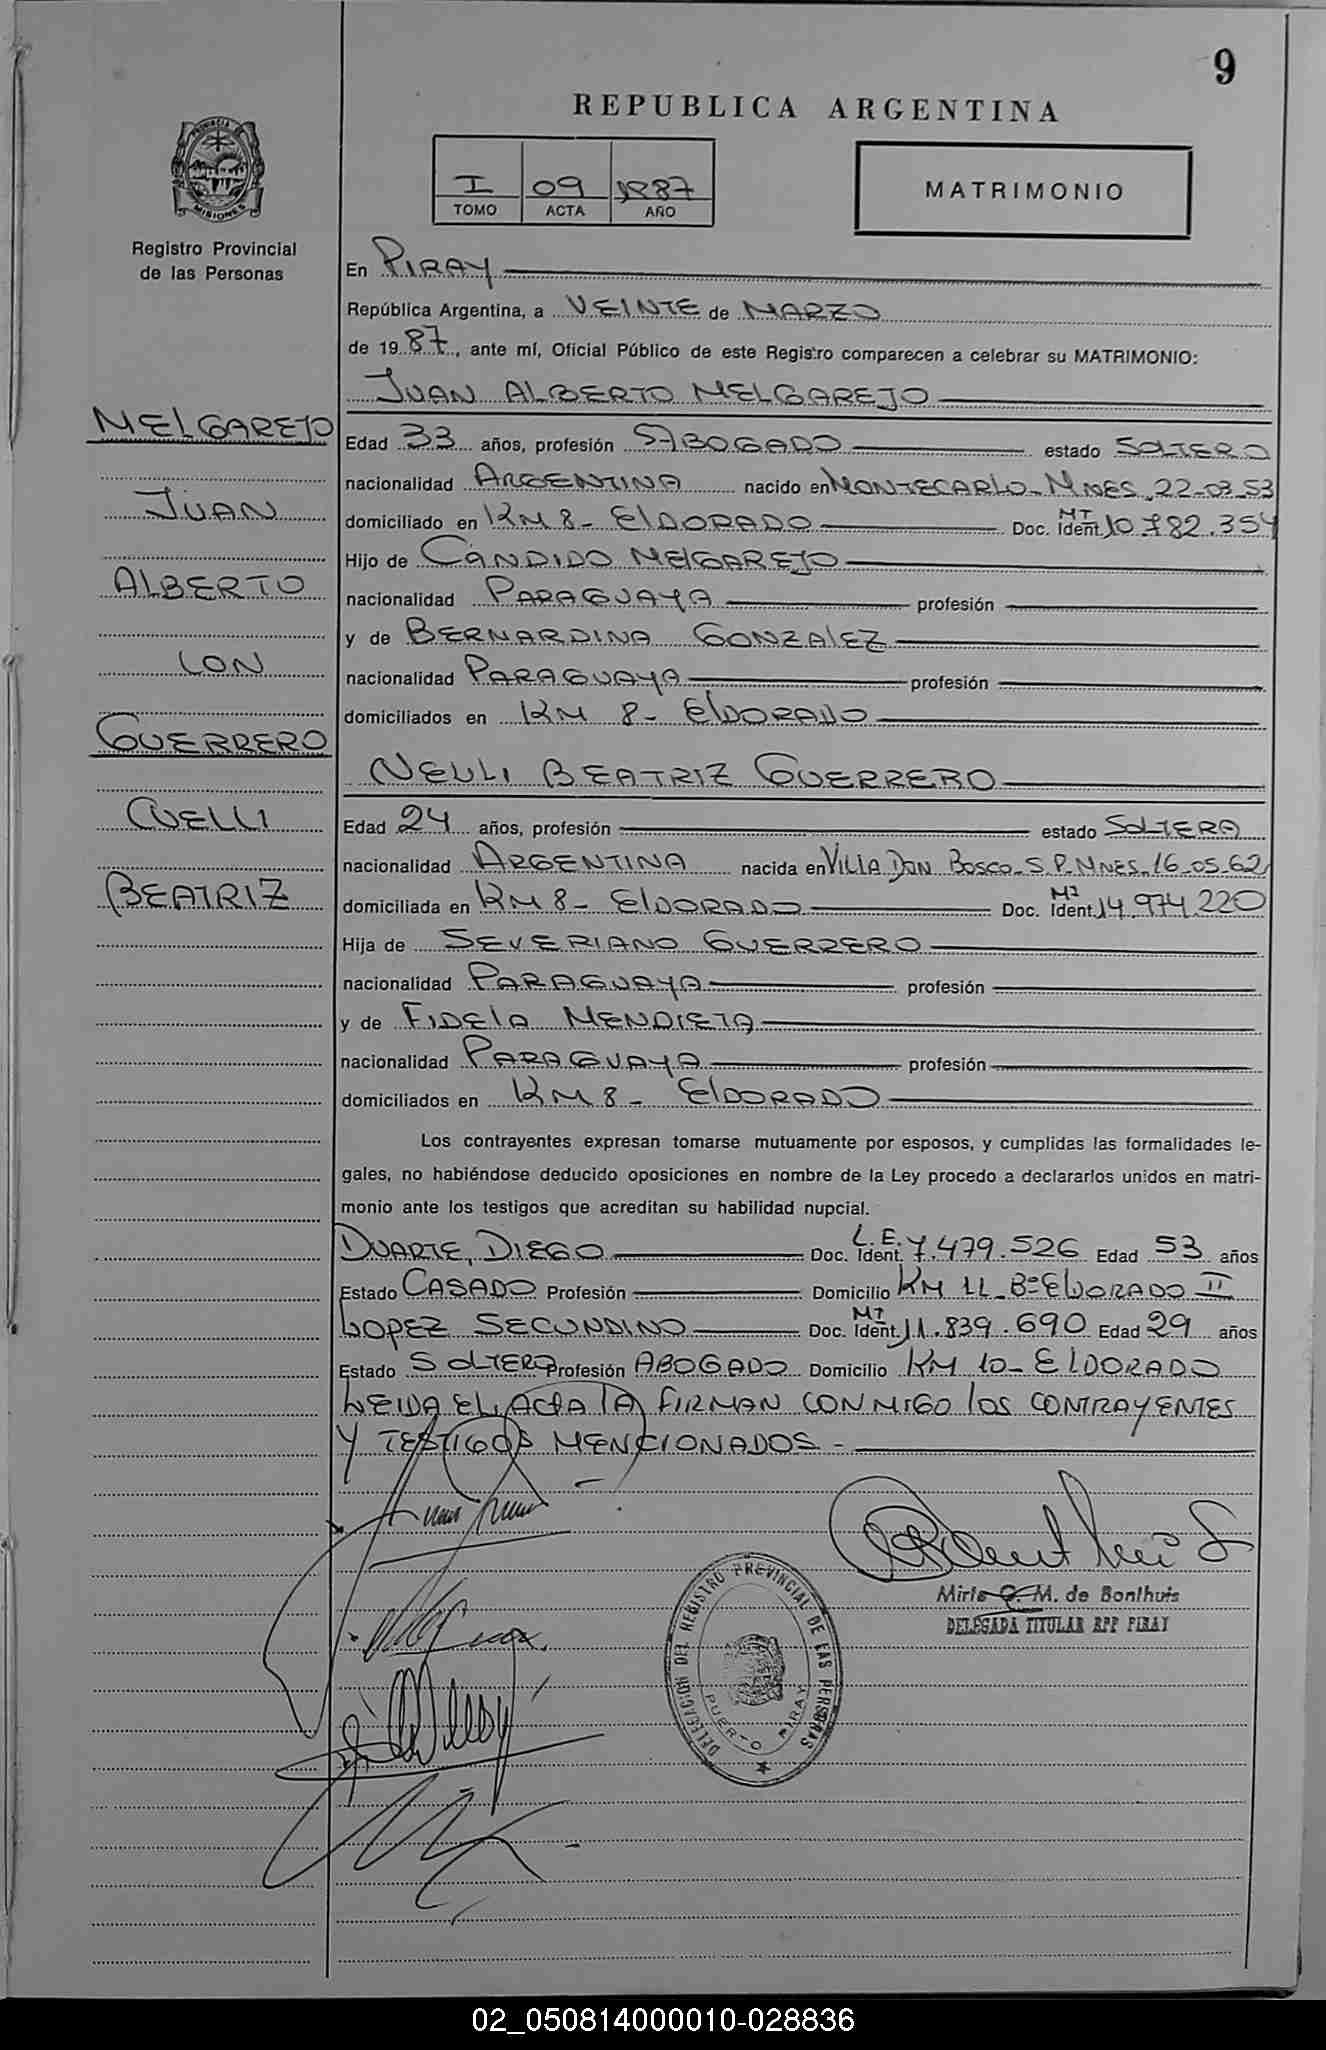 9
REPUBLICA ARGENTINA
PROVINCIA DE
MISIONES
I 09 1987
TOMO ACTA AÑO
MATRIMONIO
Registro Provincial
de las Personas
En PIRAY
República Argentina, a VEINTE de MARZO
de 1987, ante mí, Oficial Público de este Registro comparecen a celebrar su MATRIMONIO:
JUAN ALBERTO MELGAREJO
MELGAREJO
JUAN
ALBERTO
CON
GUERRERO
NELLI
BEATRIZ
Edad 33 años, profesión ABOGADO estado SOLTERO
nacionalidad ARGENTINA nacido en MONTECARLO - MNES. 22-03-53
domiciliado en KM 8 - ElDORADO Doc. Ident. MI 10.782.354
Hijo de CANDIDO MElGAREJO
nacionalidad PARAGUAYA profesión
y de BERNARDINA GONZAlEZ
nacionalidad PARAGUAYA profesión
domiciliados en KM 8 - ElDORADO
NELLI BEATRIZ GUERRERO
Edad 24 años, profesión estado SOLTERA
nacionalidad ARGENTINA nacida en VILLA DON BOSCO - S.P. MNES. 16-05-62
domiciliada en KM 8 - ElDORADO Doc. Ident. MI 14.974.220
Hija de SEVERIANO GUERRERO
nacionalidad PARAGUAYA profesión
y de FIDElA MENDIETA
nacionalidad PARAGUAYA profesión
domiciliados en KM 8 - ElDORADO
Los contrayentes expresan tomarse mutuamente por esposos, y cumplidas las formalidades le-
gales, no habiéndose deducido oposiciones en nombre de la Ley procedo a declararlos unidos en matri-
monio ante los testigos que acreditan su habilidad nupcial.
DUARTE, DIEGO Doc. Ident. L.E. 7.479.526 Edad 53 años
Estado CASADO Profesión Domicilio KM 11 - Bº ElDORADO II
LOPEZ SECUNDINO Doc. Ident. MI 11.839.690 Edad 29 años
Estado SOLTERO Profesión ABOGADO Domicilio KM 10 - ElDORADO
LEIDA EL ACTA lA FIRMAN CONMIGO lOS CONTRAYENTES
Y TESTIGOS MENCIONADOS -
Mirta G. M. de Bonlhuis
DELEGADA TITULAR RPP PIRAY
DELEGACION DEL REGISTRO PROVINCIAL DE LAS PERSONAS
PUERTO PIRAY
02_050814000010-028836